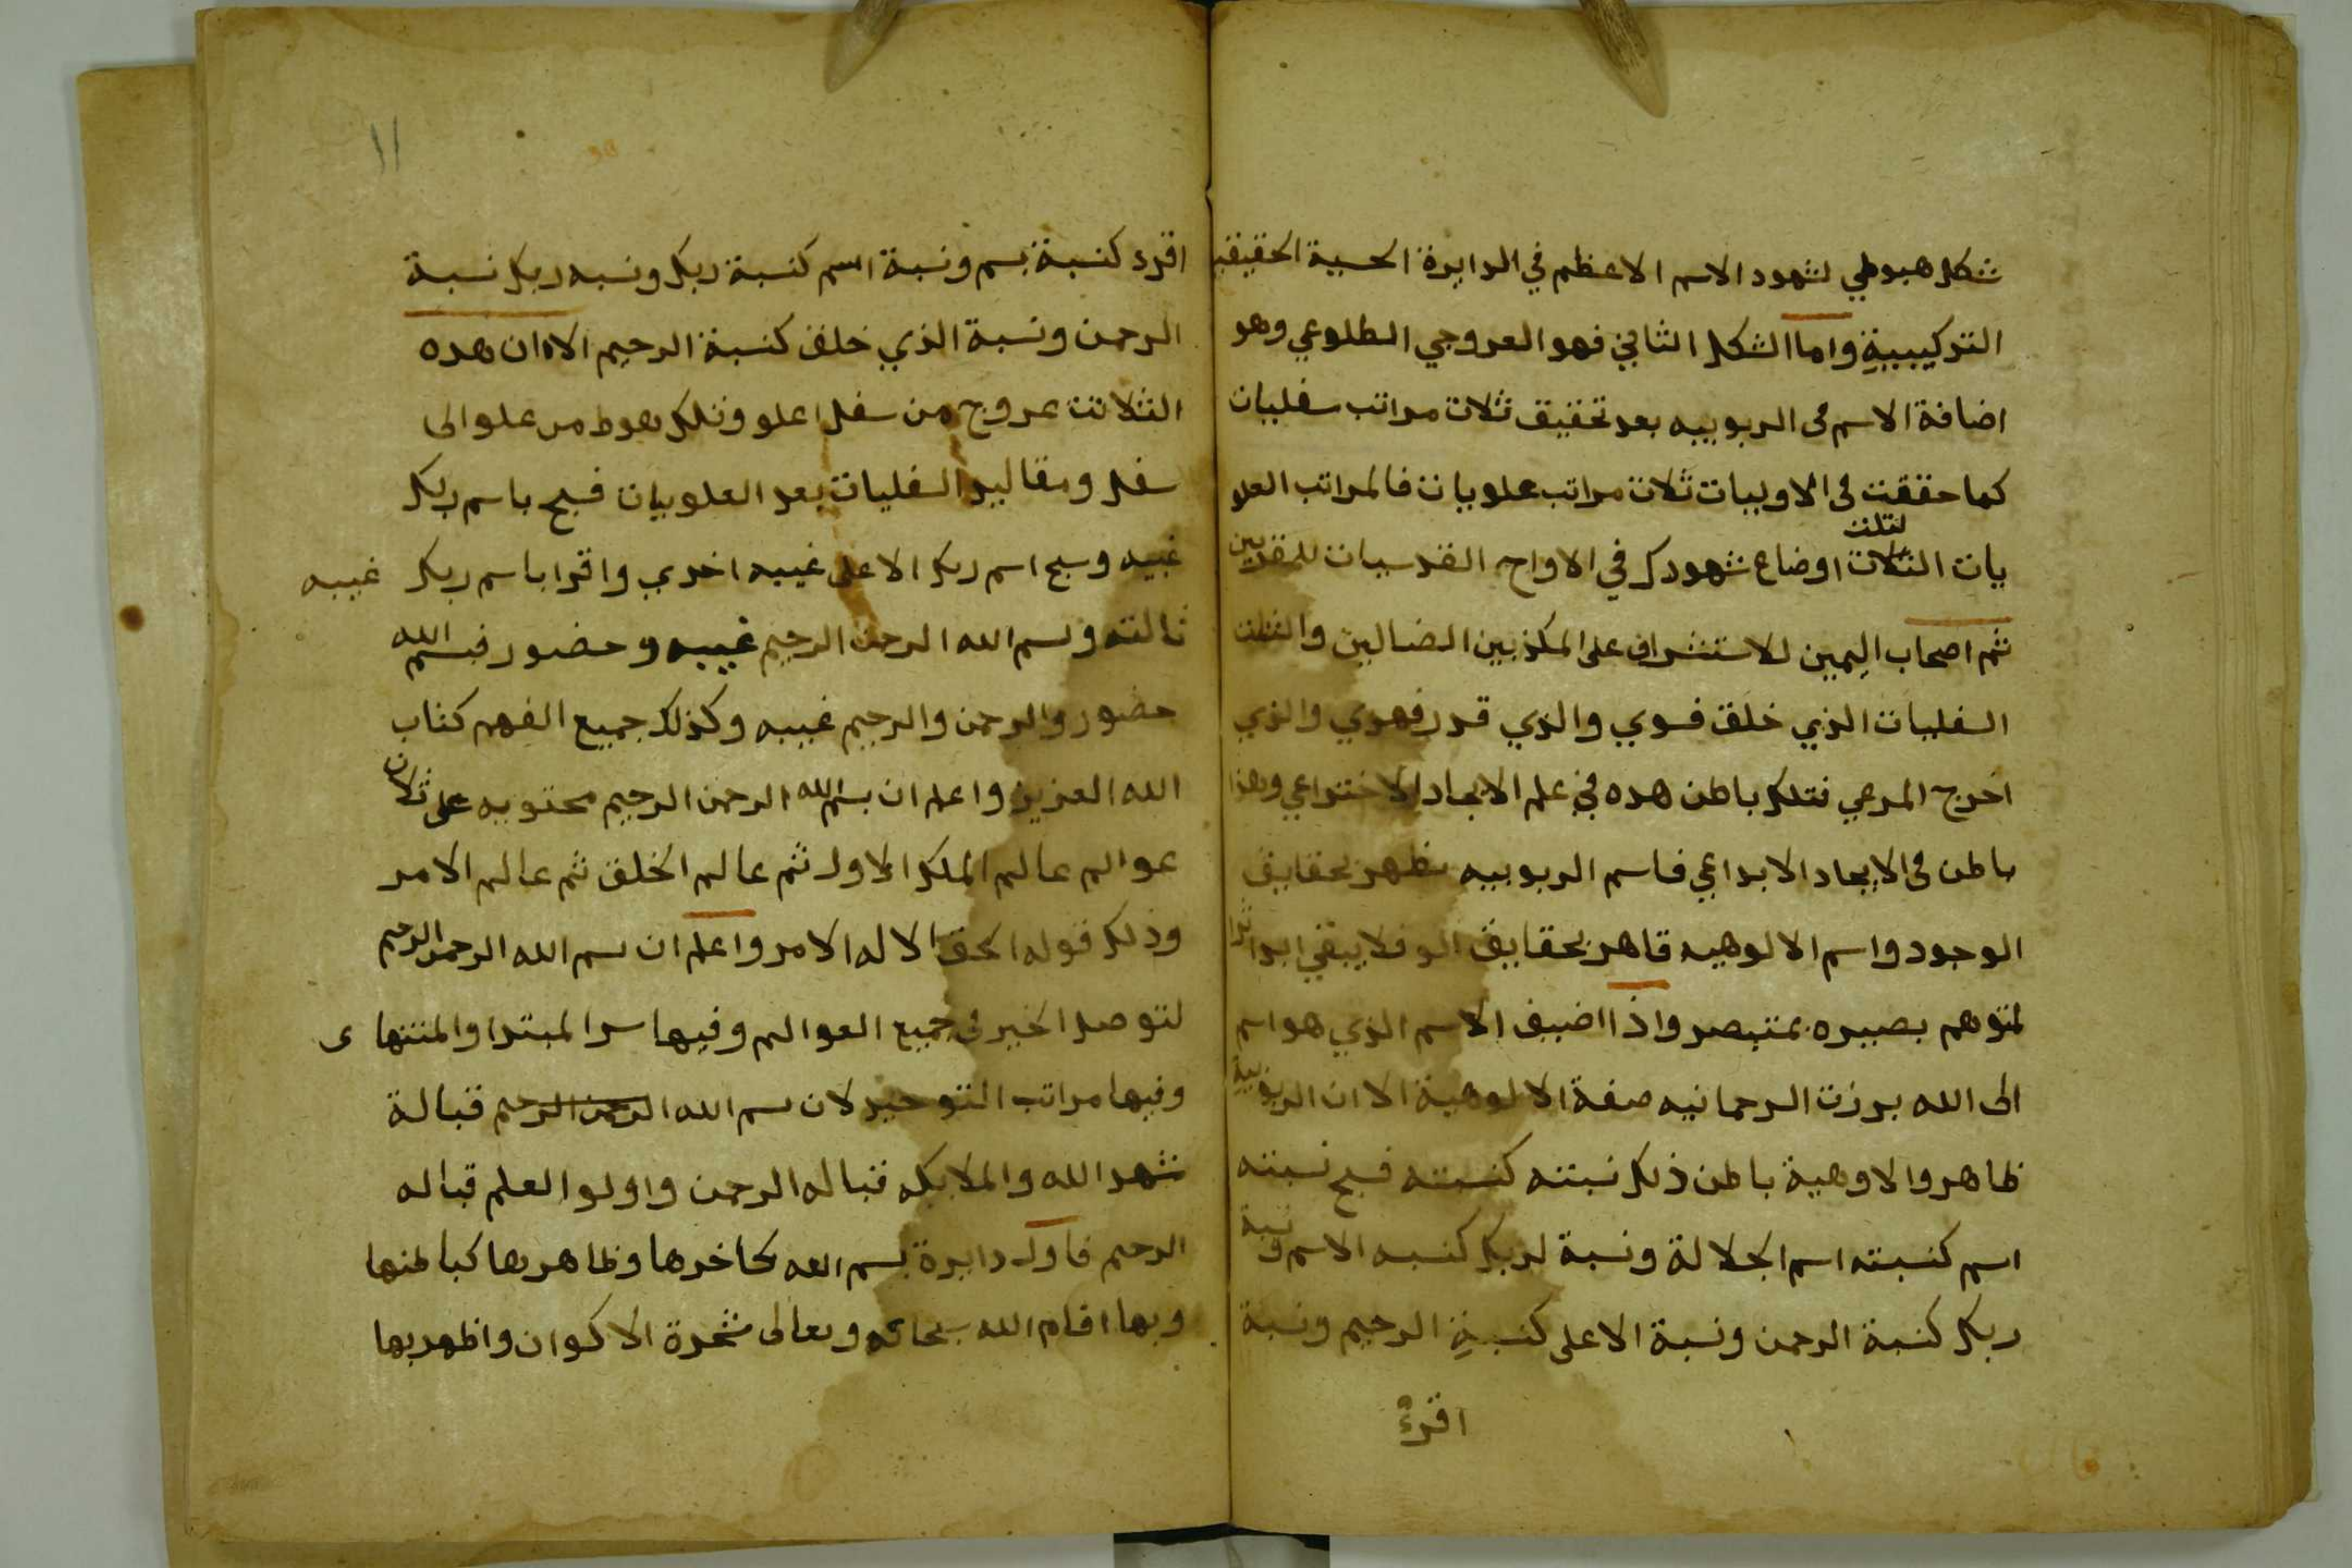 شكل هبوطي لشهود الاسم الاعظم في الدايرة الحسية الحقيقية
التركيبية واما الشكل الثاني فهو العروجي الطلوعي وهو
اضافة الاسم في الربوبيه بعد تحقيق ثلاث مراتب سفليات
كما حققت في الاوليات ثلاث مراتب علويات فالمراتب العلو
يات الثلاث لثلث اوضاع شهودك في الاواح القدسيات للمقربين
ثم اصحاب اليمين للاستشراف على المكذبين الضالين والثلث
السفليات الذي خلق فسوي والذي قدر فهدي والذي
اخرج المرعي فتلك باطن هده في علم الايجاد الاختراعي وهذا
باطن في الايجاد الابداعي فاسم الربوبيه يظهر بحقايق
الوجود واسم الالوهيه قاهر بحقايق فلا يبقي ابدا
لمتوهم بصيره بمتبصر واذا اضيف الاسم الذي هو اسم
الى الله برزت الرحمانيه صفة الالوهية الا ان الربوبية
ظاهر والاوهية باطن ذلك نسبته كنسبته فسبح نسبته
اسم كنسبته اسم الجلالة ونسبة لربك كنسبه الاسم ونسبة
ربك كنسبة الرحمن ونسبة الاعلى كنسبة الرحيم ونسبة
اقرء
١١
اقرء كنسبة بسم ونسبة اسم كنسبة ربك ونسبه ربك نسبة
الرحمن ونسبة الذي خلق كنسبة الرحيم الا ان هده
الثلاثت عروج من سفل اعلو وتلك هبوط من علو الى
سفل ومقاليد السفليات بعد العلويات فسبح باسم ربك
غيبه وسبح اسم ربك الاعلى غيبه اخري واقرا باسم ربك غيبه
ثالثه وبسم الله الرحمن الرحيم غيبه وحضور فبسم الله
حضور والرحمن والرحيم غيبه وكذلك جميع الفهم كتاب
الله العزيز واعلم ان بسم الله الرحمن الرحيم محتويه على ثلاث
عوالم عالم الملك الاول ثم عالم الخلق ثم عالم الامر
وذلك قوله الحق الا له الامر واعلم ان بسم الله الرحمن الرحيم
لتوصل الخير في جميع العوالم وفيها سر المبتدا والمنتها ى
وفيها مراتب التوحيد لان بسم الله الرحمن الرحيم قبالة
شهد الله والملايكه قباله الرحمن واولوا العلم قباله
الرحيم فاول دايرة بسم الله كاخرها وظاهرها كباطنها
وبها اقام الله سبحانه وتعالى شجرة الاكوان واظهر بها